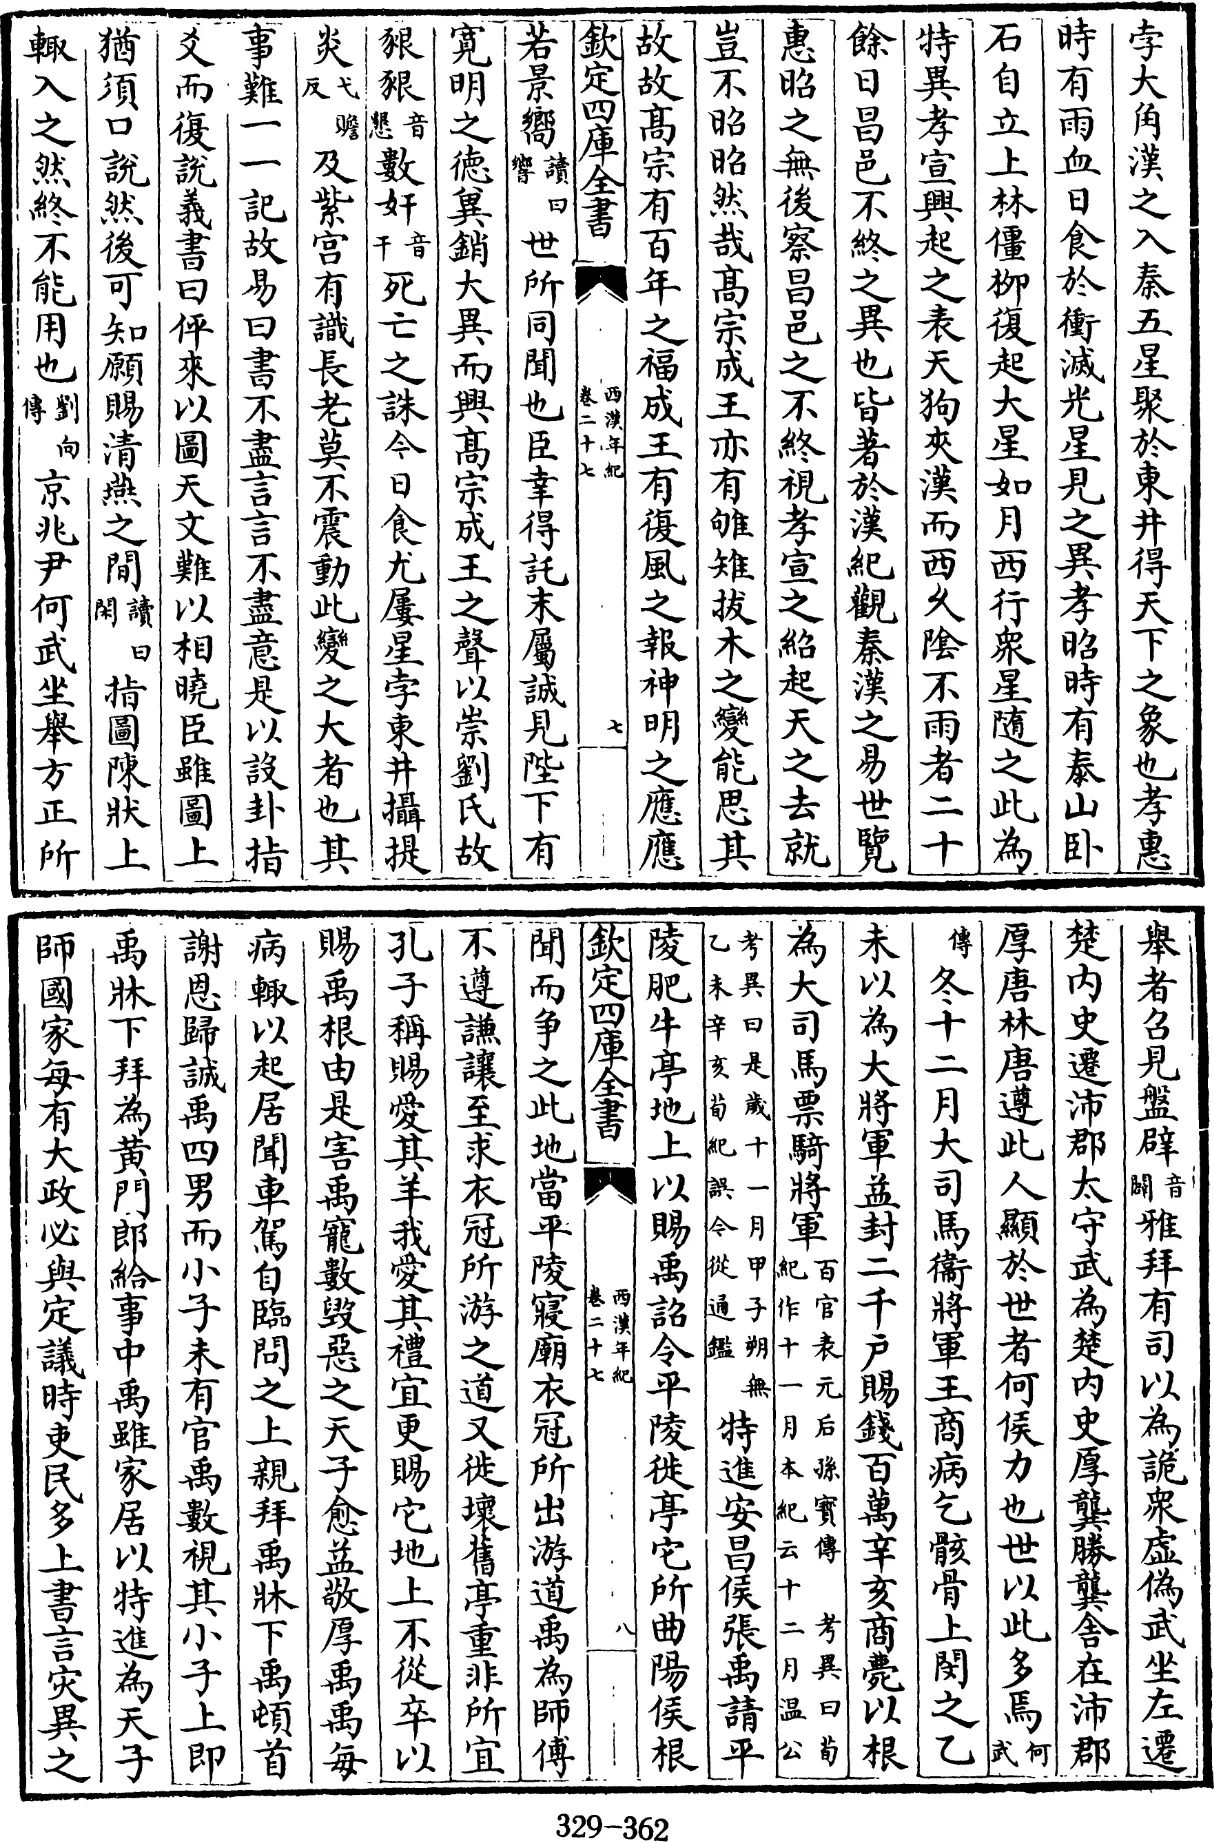 孛大角漢之入秦五星聚於東井得天下之象也孝惠
時有雨血日食於衝滅光星見之異孝昭時有泰山卧
石自立上林僵柳復起大星如月西行衆星隨之此為
特異孝宣興起之表天狗夾漢而西乆陰不雨者二十
餘日昌邑不終之異也皆著於漢紀觀秦漢之易世覽
惠昭之無後察昌邑之不終視孝宣之紹起天之去就
豈不昭昭然哉髙宗成王亦有雊雉拔木之變能思其
故故髙宗有百年之福成王有復風之報神明之應應
欽定四庫全書
西漢年紀
卷二十七
七
若景嚮讀曰響世所同聞也臣幸得託末屬誠見陛下有
寛明之德冀銷大異而興髙宗成王之聲以崇劉氏故
豤豤音懇數奸音干死亡之誅今日食尤屢星孛東井攝提
炎弋贍反及紫宫有識長老莫不震動此變之大者也其
事難一一記故易曰書不盡言言不盡意是以設卦指
爻而復說義書曰伻來以圖天文難以相曉臣雖圖上
猶須口說然後可知願賜清燕之間讀曰閑指圖陳狀上
輙入之然終不能用也劉向傳京兆尹何武坐舉方正所
舉者召見盤辟音闢雅拜有司以為詭衆虚偽武坐左遷
楚内史遷沛郡太守武為楚内史厚龔勝龔舍在沛郡
厚唐林唐遵此人顯於世者何侯力也世以此多焉何武
傳冬十二月大司馬衞將軍王商病乞骸骨上閔之乙
未以為大將軍益封二千户賜錢百萬辛亥商薨以根
為大司馬票騎將軍百官表元后孫寶傳　考異曰荀紀作十一月本紀云十二月温公
考異曰是歲十一月甲子朔無乙未辛亥荀紀誤今從通鑑特進安昌侯張禹請平
陵肥牛亭地上以賜禹詔令平陵徙亭它所曲陽侯根
欽定四庫全書
西漢年紀
卷二十七
八
聞而争之此地當平陵寢廟衣冠所出游道禹為師傅
不遵謙讓至求衣冠所游之道又徙壞舊亭重非所宜
孔子稱賜愛其羊我愛其禮宜更賜它地上不從卒以
賜禹根由是害禹寵數毀惡之天子愈益敬厚禹禹每
病輙以起居聞車駕自臨問之上親拜禹牀下禹頓首
謝恩歸誠禹四男而小子未有官禹數視其小子上即
禹牀下拜為黄門郎給事中禹雖家居以特進為天子
師國家每有大政必與定議時吏民多上書言灾異之
329-362